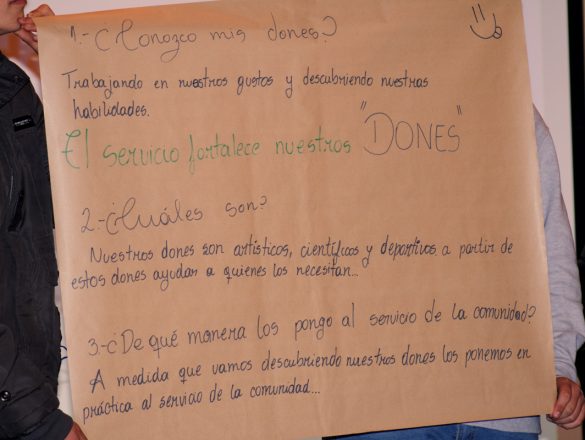 1.-¿Conozco mis dones?
Trabajando en nuestros gustos y descubriendo nuestras
habilidades.
El servicio fortalece nuestros "DONES"
2.-¿Cuáles son?
Nuestros dones son artísticos, científicos y deportivos a partir de
estos dones ayudar a quienes los necesitan...
3.-¿De qué manera los pongo al servicio de la comunidad?
A medida que vamos descubriendo nuestros dones los ponemos en
práctica al servicio de la comunidad...